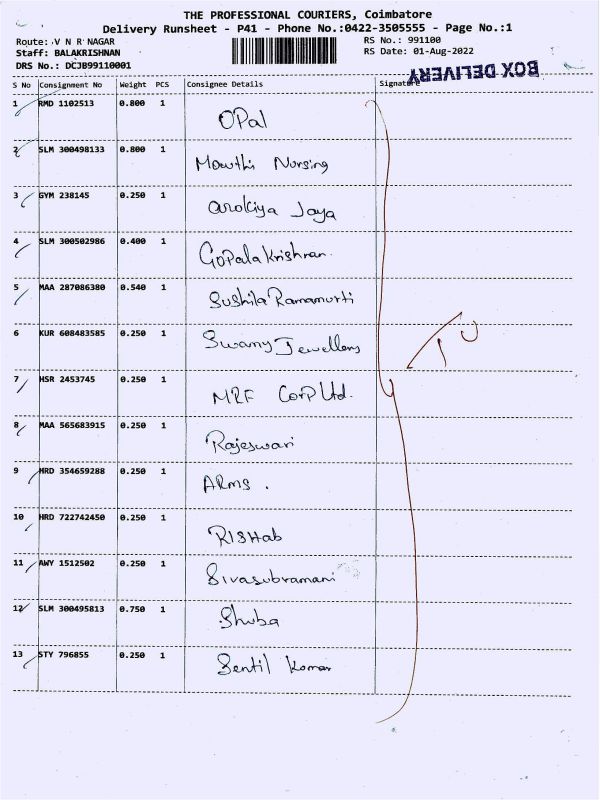 THE PROFESSIONAL COURIERS, Coimbatore
Delivery Runsheet - P41 - Phone No.:0422-3505555 - Page No.:1
Route: V N R NAGAR RS No.: 991100
Staff: BALAKRISHNAN RS Date: 01-Aug-2022
DRS No.: DCJB99110001 BOX DELIVERY
S No Consignment No Weight PCS Consignee Details Signature
1 RMD 1102513 0.800 1 OPal
2 SLM 300498133 0.800 1 Mowthi Nursing
3 GYM 238145 0.250 1 arokiya Jaya
4 SLM 300502986 0.400 1 Gopala krishnan.
5 MAA 287086380 0.540 1 Sushila Ramamurti
6 KUR 608483585 0.250 1 Swamy Jewellery
7 HSR 2453745 0.250 1 MRF Corp Ltd.
8 MAA 565683915 0.250 1 Rajeswari
9 HRD 354659288 0.250 1 ARMS .
10 HRD 722742450 0.250 1 RISHab
11 AWY 1512502 0.250 1 Sivasubramani
12 SLM 300495813 0.750 1 Shuba
13 STY 796855 0.250 1 Sentil Komar